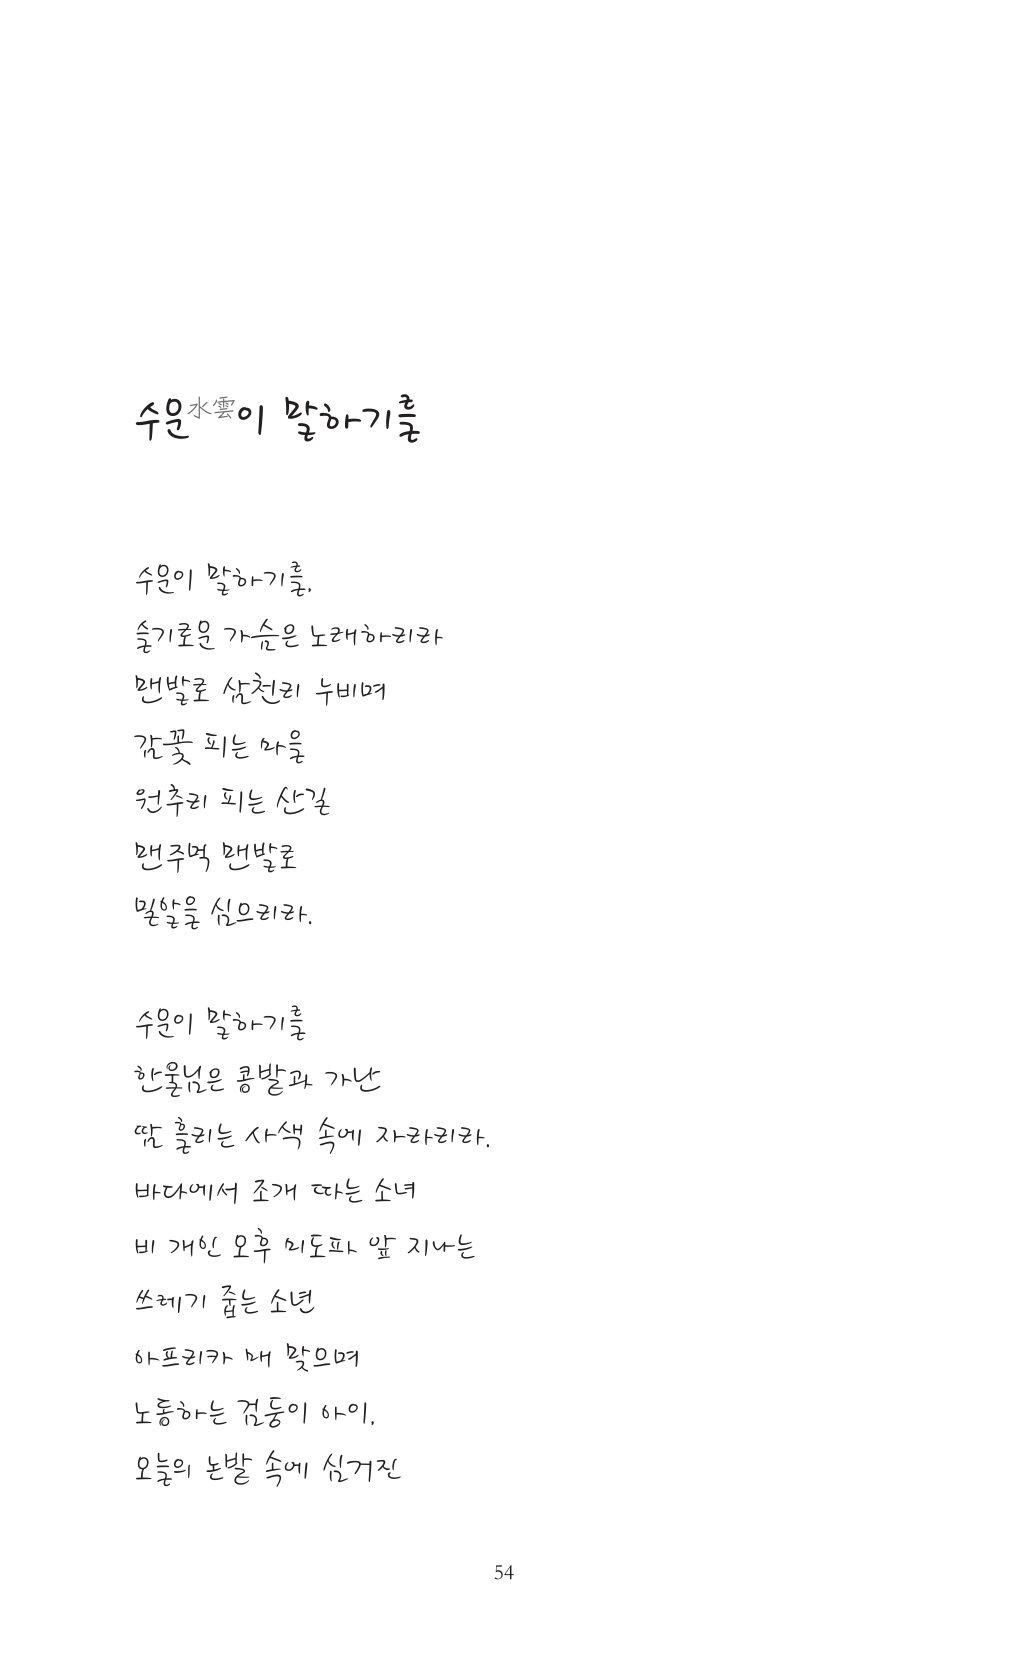 수운水雲이 말하기를
수운이 말하기를,
슬기로운 가슴은 노래하리라
맨발로 삼천리 누비며
감꽃 피는 마을
원추리 피는 산길
맨주먹 맨발로
밀알을 심으리라.
수운이 말하기를
한울님은 콩밭과 가난
땀 흘리는 사색 속에 자라리라.
바다에서 조개 따는 소녀
비 개인 오후 미도파 앞 지나는
쓰레기 줍는 소년
아프리카 매 맞으며
노동하는 검둥이 아이,
오늘의 논밭 속에 심거진
54